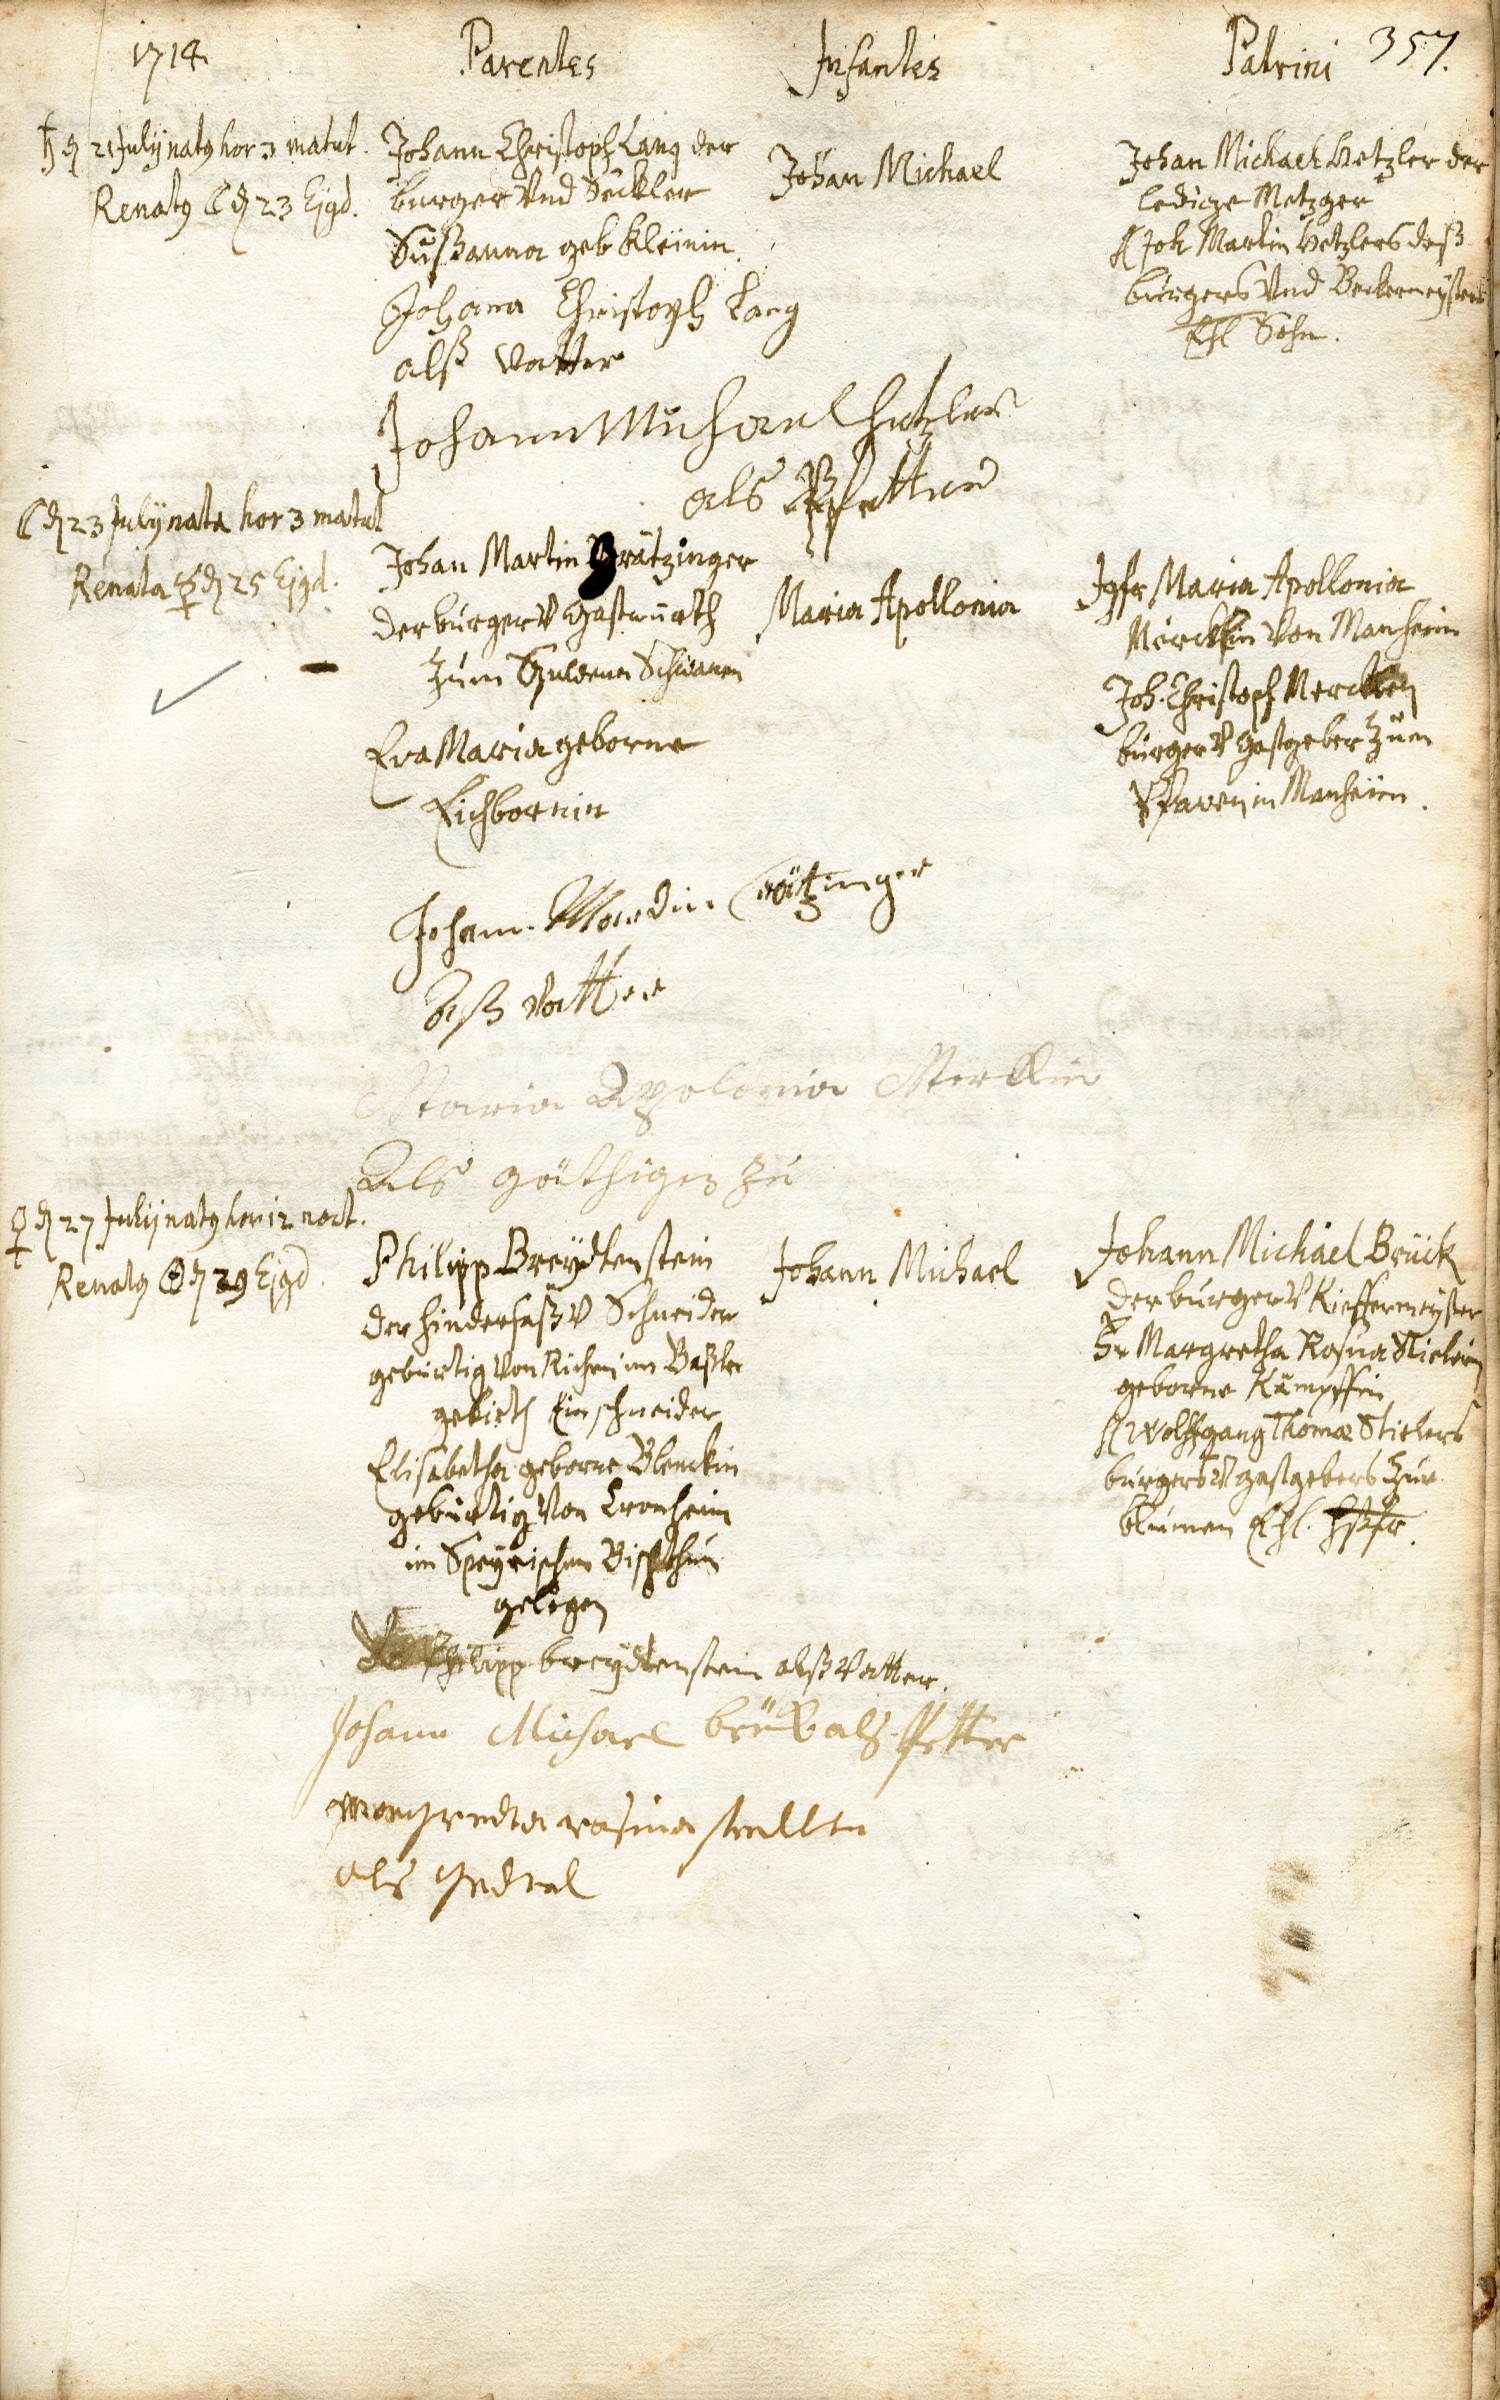 1714. Parentes Infantes Patrini 357.
♄ d 21 Julij nat9 hor 3 matut.
Renat9 ☾ d 23 Ejqd.
Johann Christoph Lang der
burger Vnd Seckler
Sußanna geb Kleinin.
Johann Christoph Lang
alß Vatter
Johann Michael Hetzler
als Pfetter
Johan Michael
Johan Michael Hetzler der
ledige Metzger
Joh Martin Hetzlers deß
burgers Vnd Beckermeysters
Ehl Sohn.
☾ d 23 Julij nata hor 3 matut
Renata ☿ d 25 Ejqd.
Johan Martin Grätzinger
der burger V Gastwürth
zum Guldenen Schwanen
Eva Maria geborne
Eichbornin
Johann Mardin Grötzinger
alß Vatter
Maria Apolonia Merckin
Als göthigen zu
Maria Apollonia
Jgfr Maria Apollonia
Merckin Von Manheim
Joh. Christoph Mercklen
burger V Gastgeber Zum
Pfawen in Manheim.
♀ d 27 Julij nat9 hor 12 noct.
Renat9 ☉ d 29 Ejqd.
Philipp Breydtenstein
der hindersaß V Schneider
geburtig Von Richen im Baßler
gebieth Ein schneider
Elisabetha geborne Blenckin
geburtig Von Cronheim
im Speyrischen Bischthum
gelegen
Philipp breydtenstein alß Vatter.
Johann Michael brück als Pfetter
margredta rosina
als
Johann Michael
Johann Michael Brück
der burger V Kieffermeyster
Fr Margretha Rosina Stielerin
geborne Kämpffin
Wolffgang Thomæ Stielers
burgers V gastgebers Zur
blumen Ehl. Hßfr.